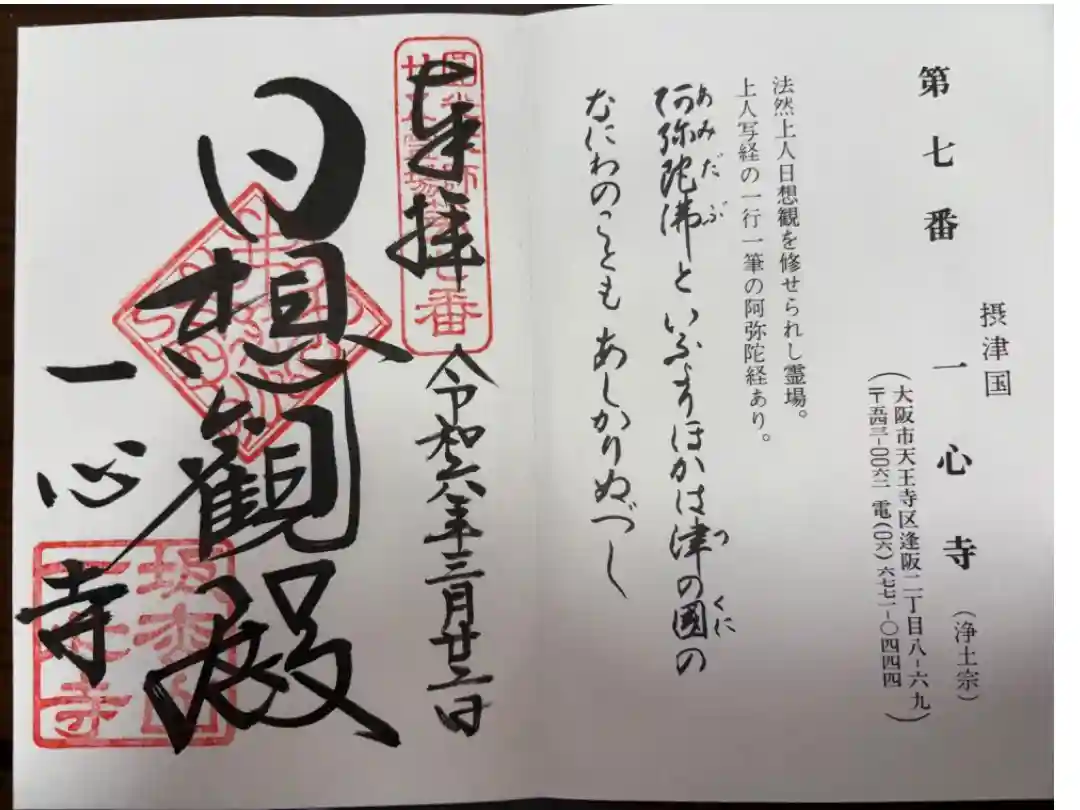 摂津国
第七番 一心寺（浄土宗）
（大阪市天王寺区逢阪二丁目八-六九
〒五四三-〇〇六二 電（〇六）六七七一-〇四四四）
法然上人日想観を修せられし霊場。
上人写経の一行一筆の阿弥陀経あり。
あみだぶ
つ
くに
阿弥陀佛といふよりほかは津の國の
なにわのことも あしかりぬべし
奉拝
令和六年三月廿二日
日想観殿
一心寺
圓光大師
廿五霊場第七番
坂松山
一心寺